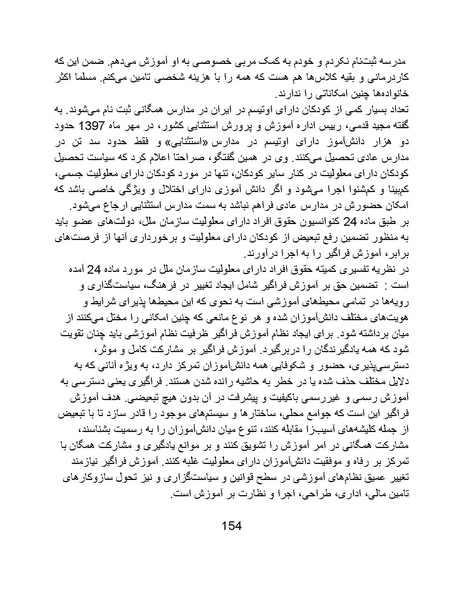 مدرسه ثبت‌نام نکردم و خودم به کمک مربی خصوصی به او آموزش می‌دهم. ضمن این که
کاردرمانی و بقیه کلاس‌ها هم هست که همه را با هزینه شخصی تامین می‌کنم. مسلما اکثر
خانواده‌ها چنین امکاناتی را ندارند.
تعداد بسیار کمی از کودکان دارای اوتیسم در ایران در مدارس همگانی ثبت نام می‌شوند. به
گفته مجید قدمی، رییس اداره آموزش و پرورش استثنایی کشور، در مهر ماه 1397 حدود
دو هزار دانش‌آموز دارای اوتیسم در مدارس «استثنایی» و فقط حدود سد تن در
مدارس عادی تحصیل می‌کنند. وی در همین گفتگو، صراحتا اعلام کرد که سیاست تحصیل
کودکان دارای معلولیت در کنار سایر کودکان، تنها در مورد کودکان دارای معلولیت جسمی،
کم‌بینا و کم‌شنوا اجرا می‌شود و اگر دانش آموزی دارای اختلال و ویژگی خاصی باشد که
امکان حضورش در مدارس عادی فراهم نباشد به سمت مدارس استثنایی ارجاع می‌شود.
بر طبق ماده 24 کنوانسیون حقوق افراد دارای معلولیت سازمان ملل، دولت‌های عضو باید
به منظور تضمین رفع تبعیض از کودکان دارای معلولیت و برخورداری آنها از فرصت‌های
برابر، آموزش فراگیر را به اجرا درآورند.
در نظریه تفسیری کمیته حقوق افراد دارای معلولیت سازمان ملل در مورد ماده 24 آمده
است : تضمین حق بر آموزش فراگیر شامل ایجاد تغییر در فرهنگ، سیاست‌گذاری و
رویه‌ها در تمامی محیط‌های آموزشی است به نحوی که این محیط‌ها پذیرای شرایط و
هویت‌های مختلف دانش‌آموزان شده و هر نوع مانعی که چنین امکانی را مختل می‌کنند از
میان برداشته شود. برای ایجاد نظام آموزش فراگیر ظرفیت نظام آموزشی باید چنان تقویت
شود که همه یادگیرندگان را دربرگیرد. آموزش فراگیر بر مشارکت کامل و موثر،
دسترسی‌پذیری، حضور و شکوفایی همه دانش‌آموزان تمرکز دارد، به ویژه آنانی که به
دلایل مختلف حذف شده یا در خطر به حاشیه رانده شدن هستند. فراگیری یعنی دسترسی به
آموزش رسمی و غیررسمی باکیفیت و پیشرفت در آن بدون هیچ تبعیضی. هدف آموزش
فراگیر این است که جوامع محلی، ساختارها و سیستم‌های موجود را قادر سازد تا با تبعیض
از جمله کلیشه‌های آسیب‌زا مقابله کنند، تنوع میان دانش‌آموزان را به رسمیت بشناسند،
مشارکت همگانی در امر آموزش را تشویق کنند و بر موانع یادگیری و مشارکت همگان با
تمرکز بر رفاه و موفقیت دانش‌آموزان دارای معلولیت غلبه کنند. آموزش فراگیر نیازمند
تغییر عمیق نظام‌های آموزشی در سطح قوانین و سیاست‌گزاری و نیز تحول سازوکارهای
تامین مالی، اداری، طراحی، اجرا و نظارت بر آموزش است.
154